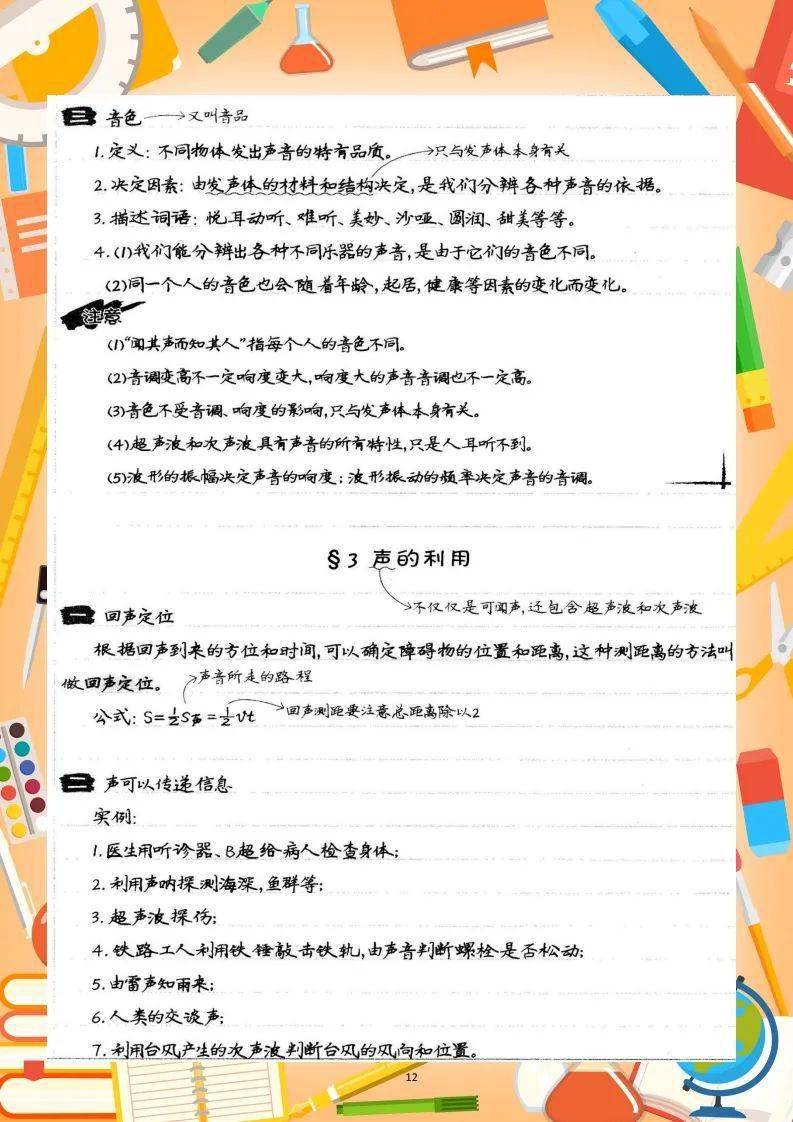 三 音色 → 又叫音品
1. 定义: 不同物体发出声音的特有品质。 → 只与发声体本身有关
2. 决定因素: 由发声体的材料和结构决定,是我们分辨各种声音的依据。
3. 描述词语: 悦耳动听、难听、美妙、沙哑、圆润、甜美等等。
4. (1)我们能分辨出各种不同乐器的声音,是由于它们的音色不同。
(2)同一个人的音色也会随着年龄,起居,健康等因素的变化而变化。
注意
(1)“闻其声而知其人”指每个人的音色不同。
(2)音调变高不一定响度变大,响度大的声音音调也不一定高。
(3)音色不受音调、响度的影响,只与发声体本身有关。
(4)超声波和次声波具有声音的所有特性,只是人耳听不到。
(5)波形的振幅决定声音的响度; 波形振动的频率决定声音的音调。
§3 声的利用
不仅仅是可闻声,还包含超声波和次声波
一 回声定位
根据回声到来的方位和时间,可以确定障碍物的位置和距离,这种测距离的方法叫
做回声定位。 → 声音所走的路程
公式: S=½S声=½vt → 回声测距要注意总距离除以2
二 声可以传递信息
实例:
1. 医生用听诊器、B超给病人检查身体;
2. 利用声呐探测海深,鱼群等;
3. 超声波探伤;
4. 铁路工人利用铁锤敲击铁轨,由声音判断螺栓是否松动;
5. 由雷声知雨来;
6. 人类的交谈声;
7. 利用台风产生的次声波判断台风的风向和位置。
12